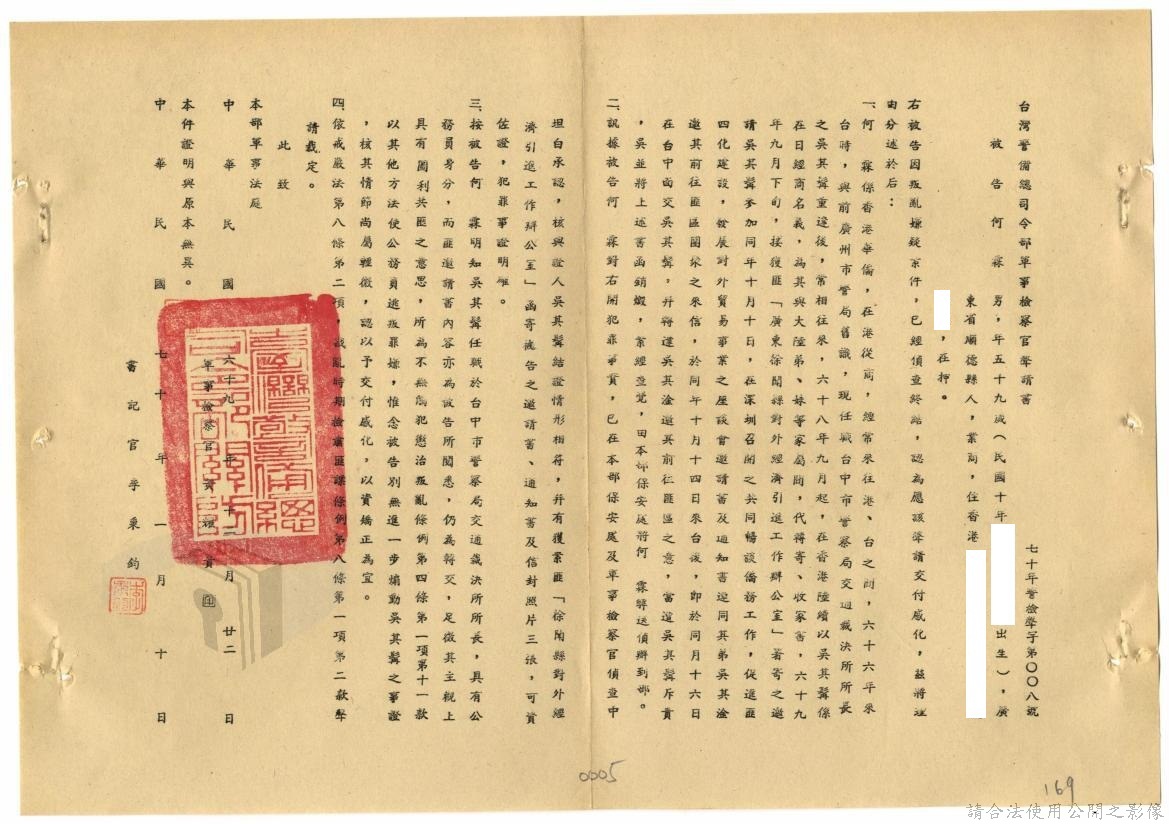 台灣警備總司令部軍事檢察官聲請書
七十年警檢聲字第〇〇八號
被告何　霖　男，年五十九歲（民國十年
出生），廣
東省順德縣人，業商，住香港
，在押。
右被告因叛亂嫌疑案件，已經偵查終結，認為應該聲請交付感化，茲將理
由分述於后：
一、何　霖係香港華僑，在港從商，經常來往港、台之間，六十六年來
台時，與前廣州市警局舊識，現任職台中市警察局交通裁決所所長
之吳其髯重逢後，常相往來，六十八年九月起，在香港陸續以吳其髯係
在日經商名義，為其與大陸弟、妹等家屬間，代轉寄、收家書，六十九
年九月下旬，接獲匪「廣東徐聞縣對外經濟引進工作辦公室」署寄之邀
請吳其髯參加同年十月十日，在深圳召開之共同暢談僑務工作，促進匪
四化建設，發展對外貿易事業之座談會邀請書及通知書連同其弟吳其淦
邀其前往匪區團聚之來信，於同年十月十四日來台後，即於同月十六日
在台中面交吳其髯，并將運吳其淦邀其前往匪區之意，當遭吳其髯斥責
，吳並將上述書函銷燬，案經查覺，由本部保安處將何　霖解送偵辦到部。
二、訊據被告何　霖對右開犯罪事實，已在本部保安處及軍事檢察官偵查中
坦白承認，核與證人吳其髯結證情形相符，并有獲案匪「徐聞縣對外經
濟引進工作辦公室」函寄被告之邀請書、通知書及信封照片三張，可資
佐證，犯罪事證明確。
三、按被告何　霖明知吳其髯任職於台中市警察局交通裁決所所長，具有公
務員身分，而匪邀請書內容亦為被告所閱悉，仍為轉交，足徵其主觀上
具有圖利共匪之意思，所為不無觸犯懲治叛亂條例第四條第一項第十一款
以其他方法使公務員逃叛罪嫌，惟念被告別無進一步煽動吳其髯之事證
，核其情節尚屬輕微，認以予交付感化，以資矯正為宜。
四、依戒嚴法第八條第二項，戡亂時期檢肅匪諜條例第八條第一項第二款聲
請裁定。
此致
本部軍事法庭
中華民國六十九年十二月廿二日
軍事檢察官
本件證明與原本無異。
中華民國七十年一月十日
書記官李秉鈞
0005
169
請合法使用公開之影像